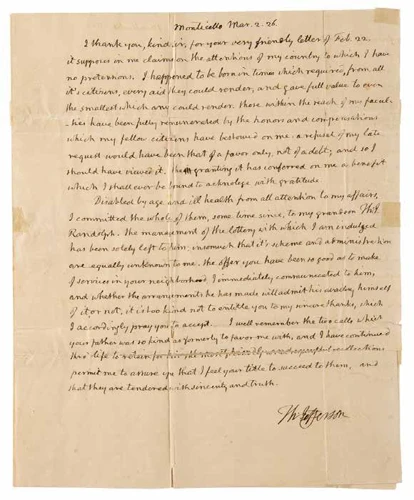 Monticello Mar. 2. 26.
I thank you, kind sir, for your very friendly letter of Feb. 22.
it supposes in me claims on the attentions of my country to which I have
no pretensions. I happened to be born in times which required, from all
it's citizens, every aid they could render, and gave full value to even
the smallest which any could render. those within the reach of my facul-
-ties have been fully remunerated by the honors and compensations
which my fellow citizens have bestowed on me. a refusal of my late
request would have been that of a favor only, not of a debt; and so I
should have viewed it. the granting it has conferred on me a benefit
which I shall ever be bound to acknolege with gratitude
Disabled by age and ill health from all attention to my affairs,
I committed the whole of them, some time since, to my grandson Th: J.
Randolph. the management of the lottery with which I am indulged
has been solely left to him; insomuch that it's scheme and administration
are equally unknown to me. the offer you have been so good as to make
of services in your neighborhood I immediately communicated to them,
and whether the arrangements he has made will admit his availing himself
of it or not, it is too kind not to entitle you to my sincere thanks, which
I accordingly pray you to accept. I well remember the two calls which
your father was so kind as formerly to favor me with, and I have continued
thro' life to retain for him the most friendly and respectful recollections
permit me to assure you that I feel your title to succeed to them, and
that they are tendered with sincerity and truth.
Th: Jefferson